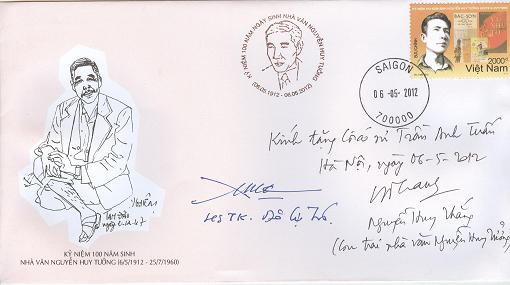 KỶ NIỆM 100 NĂM NGÀY SINH NHÀ VĂN NGUYỄN HUY TƯỞNG
(06.05.1912 - 06.05.2012)
BẮC SƠN
2000đ
Việt Nam
SAIGON
06-05-2012
700000
Kính tặng Trần Anh Tuấn
Hà Nội, ngày 06-5-2012
Nguyễn Huy Thắng
(Con trai nhà văn Nguyễn Huy Tưởng)
HSTK.
KỶ NIỆM 100 NĂM SINH
NHÀ VĂN NGUYỄN HUY TƯỞNG (6/5/1912 - 25/7/1960)